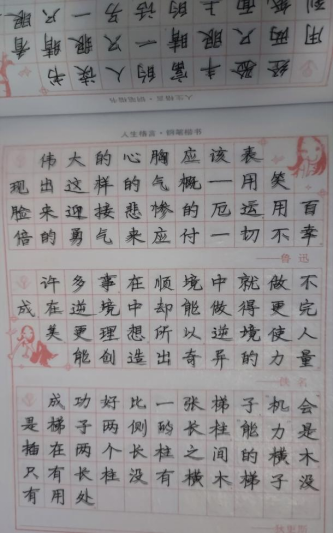 经验丰富的人读书
用两只眼睛一只眼睛看
到纸面上的话另一只眼
人生格言·钢笔楷书
人生格言·钢笔楷书
伟大的心胸应该表
现出这样的气概—用笑
脸来迎接悲惨的厄运用百
倍的勇气来应付一切不幸
——鲁迅
许多事在顺境中就做不
成在逆境中却能做得更完
美更理想所以逆境使人
能创造出奇异的力量
——佚名
成功好比一张梯子机会
是梯子两侧的长柱能力是
插在两个长柱之间的横木
只有长柱没有横木梯子没
有用处